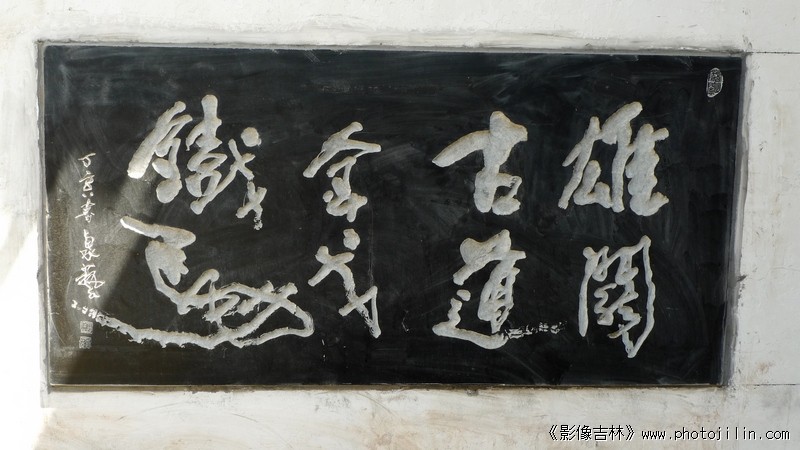 雄關
古道
金戈
鐵馬
丁亥春泉
《影像吉林》www.photojilin.com